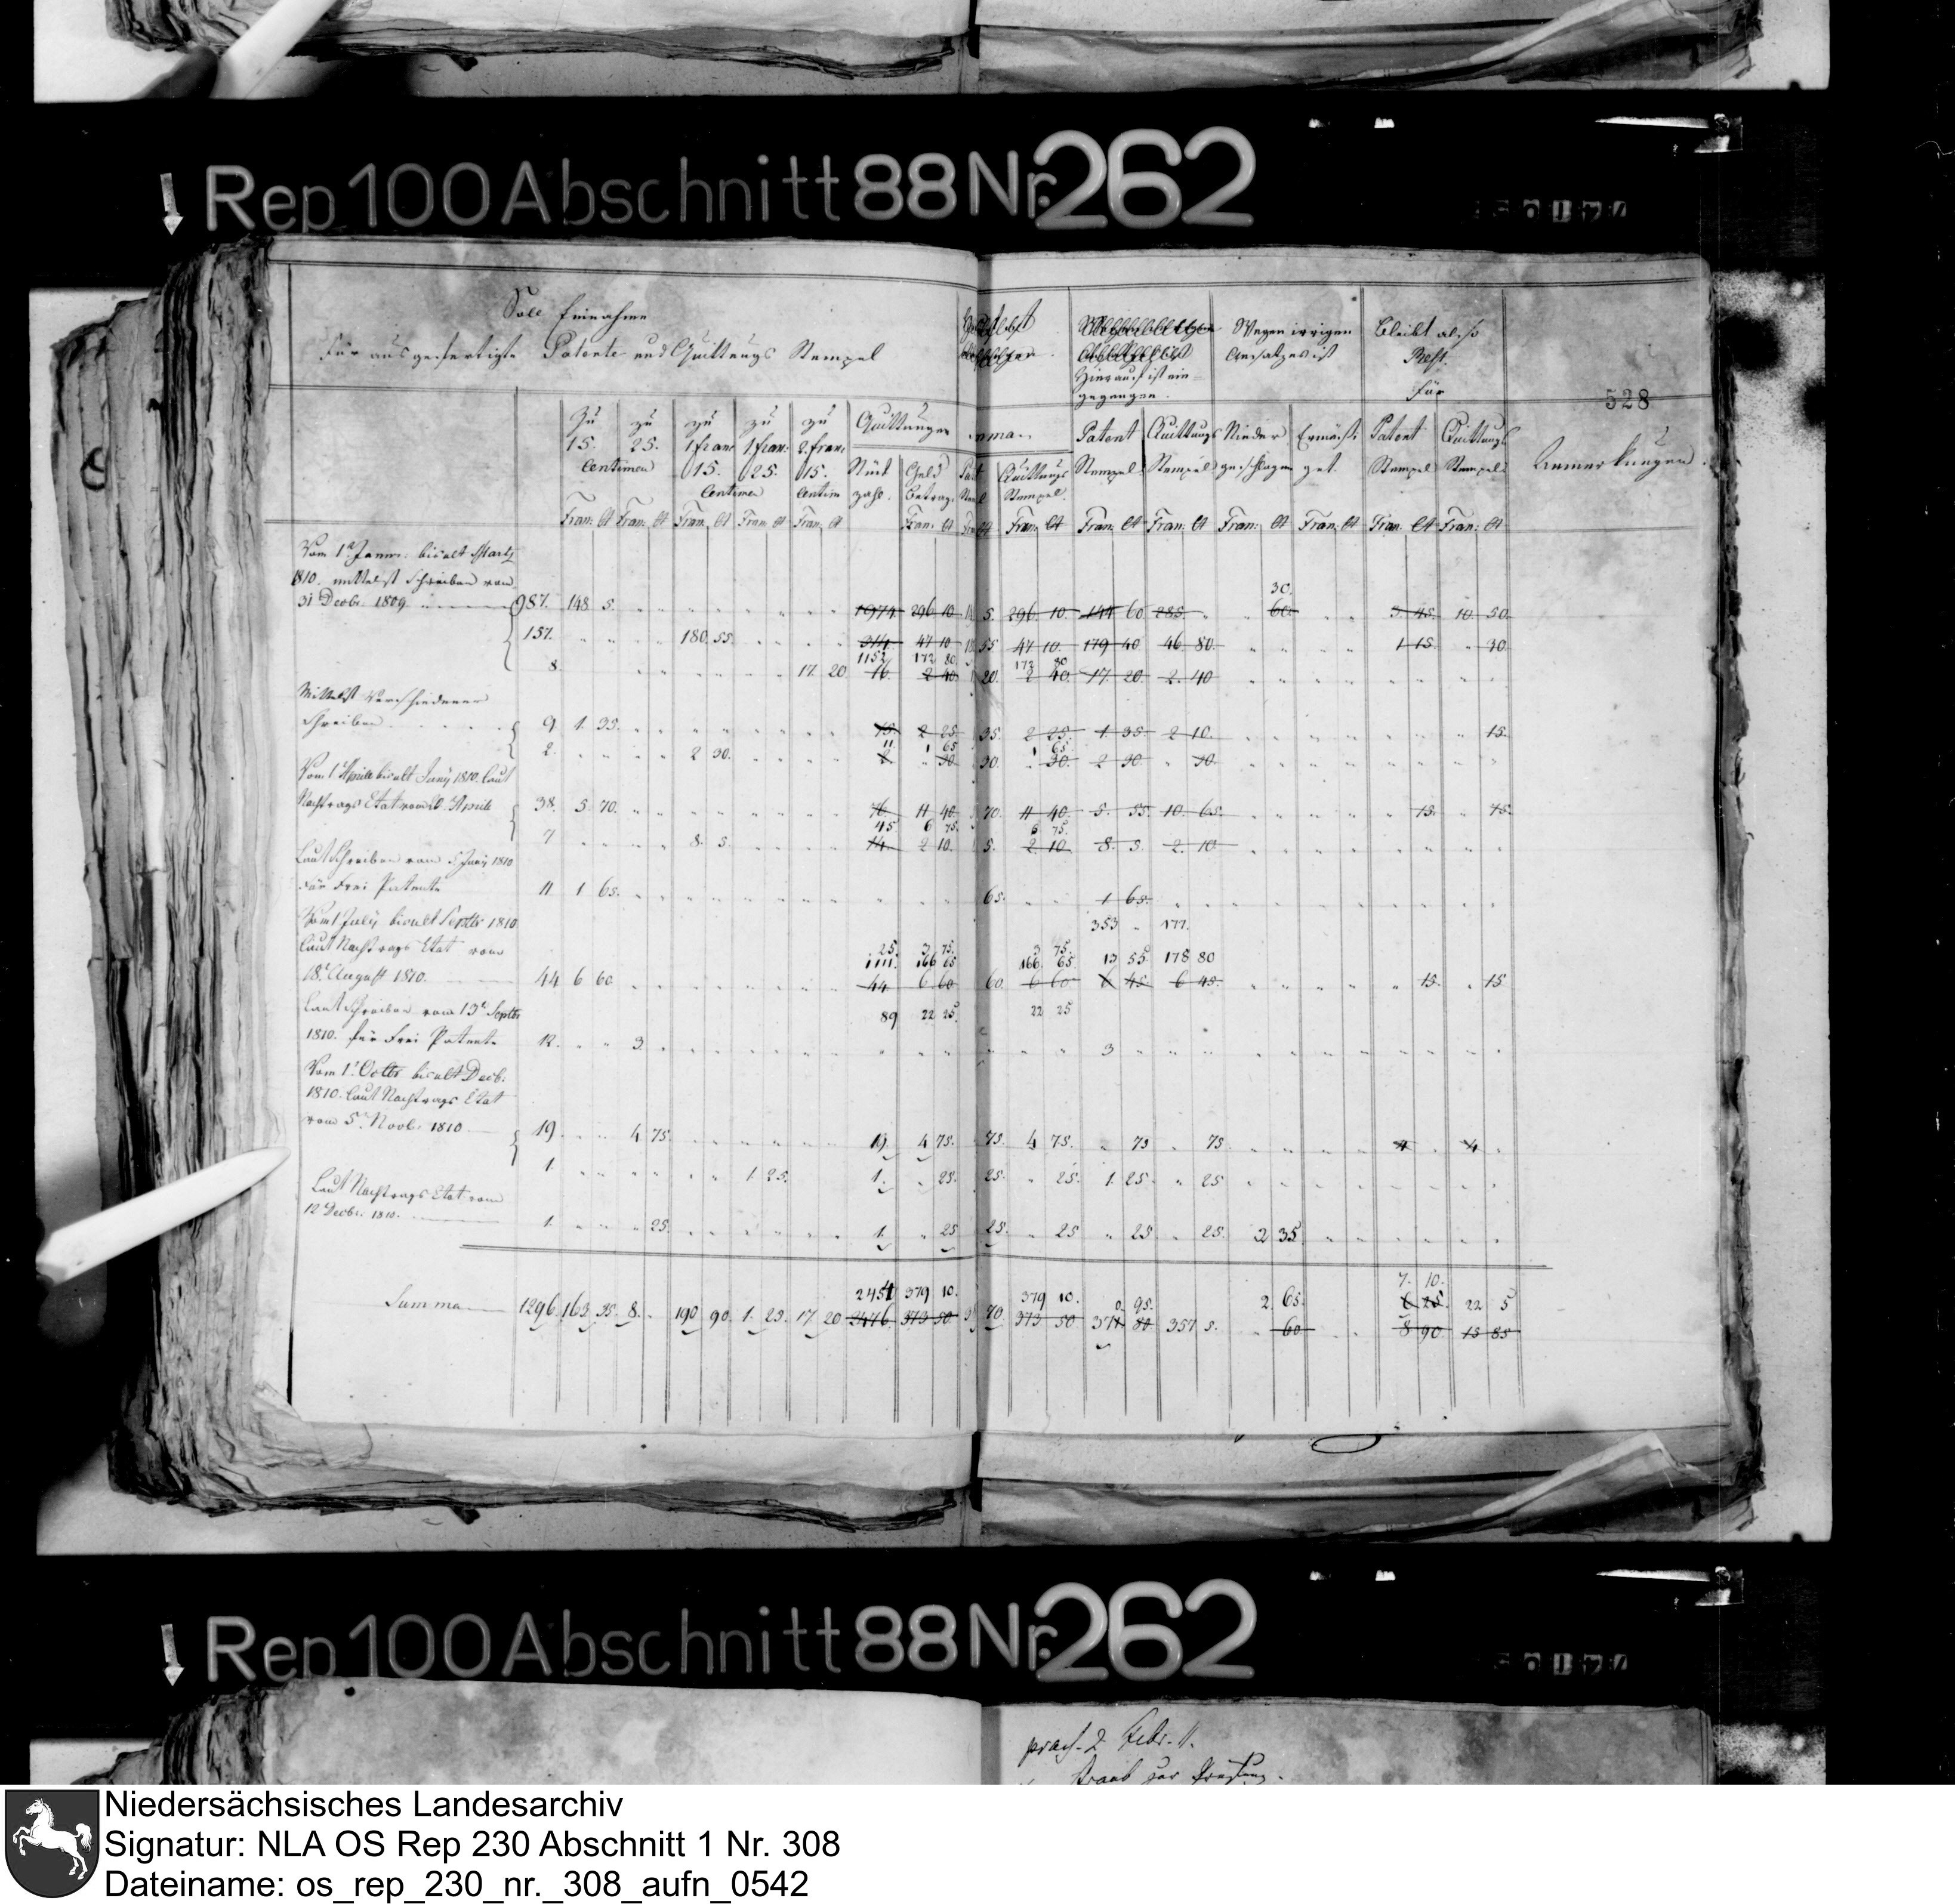 Rep 100 Abschnitt 88 Nr. 262
Soll Einnahme
Für ausgefertigte Patente und Quittungs Stempel
Hierauf ist ein-
gegangen.
Wegen irrigen
Ansatzes ist
Bleibt also
Rest.
Für
528
zu 15. zu 25. Centimen
zu 1 fran: 15. zu 1 fran: 25. Centimen
zu 2 fran: 15. Centim
Quittungen
Stück zahl. Geld betrag.
Quittungs Stempel.
Patent Stempel Quittungs Stempel
Nieder geschlagen Ermäßiget.
Patent Stempel Quittungs Stempel
Anmerkungen.
Fran: Ct Fran: Ct Fran: Ct Fran: Ct Fran: Ct Fran: Ct Fran: Ct Fran: Ct Fran: Ct Fran: Ct Fran: Ct Fran: Ct Fran: Ct
Vom 1t Janur. bis ult Martz
1810. mittelst Schreiben vom 30.
31 Decbr. 1809 987. 148 5. 1974 296 10 5. 296 10. 144 60 285 60 3 45. 10 50.
157. 180. 55. 314 47 10 55 47 10. 179 40 46 80. 1 15 30
1152 172 80. 172 80
8. 17. 20 16. 2 40. 20. 2 40. 17. 20 2. 40
Mittelst Verschiedener
Schreiben 9 1. 35. 15. 2 25. 35. 2 25. 1. 35 2 10. 15.
11 1 65 1 65.
2. 2 30. 2 30 30. 30. 2 30 30.
Vom 1t Aprile bis ult Juny 1810. laut
Nachtrags Etat vom 20. Aprile 38. 5. 70. 76 11 40. 70. 11 40. 5. 55. 10. 65. 15. 75.
45. 6 75. 6 75.
7 8. 5. 14. 2 10. 5. 2. 10. 8. 5. 2. 10
Laut Schreiben vom 5 Juny 1810
Für Frei Patente 11 1 65. 65. 1 65.
Vom 1 July bis ult Septbr 1810 353 177.
laut Nachtrags Etat vom 25. 3 75. 3 75.
18t August 1810. 1111. 166 65 166. 65 13 55 178 80
44 6 60. 44 6 60 60. 6 60 6 45 6 45. 15. 15
Laut Schreiben vom 13t Septbr 89 22 25. 22 25
1810. für Frei Patente 12. 3. 3
Vom 1t Octbr bis ult Decb:
1810. laut Nachtrags Etat
vom 5t Novb. 1810 19. 4. 75. 19. 4 75. 75. 4 75. 75 75. 4 4
1. 1 25. 1. 25. 25. 25. 1. 25. 25
Laut Nachtrags Etat vom
12 Decbr. 1810. 1. 25. 1. 25 25. 25 25 25. 2 35
2454 379 10. 379 10. 0. 95. 2. 65. 7. 10.
6 25. 22 5
Summa 1296. 163. 35. 8. 190 90. 1. 25. 17. 20 2476. 373 50. 70. 373 50 371 80 357 5. 60 8 90 15 85
Rep 100 Abschnitt 88 Nr. 262
praes. 2 Febr. 11.
Niedersächsisches Landesarchiv
Signatur: NLA OS Rep 230 Abschnitt 1 Nr. 308
Dateiname: os_rep_230_nr._308_aufn_0542